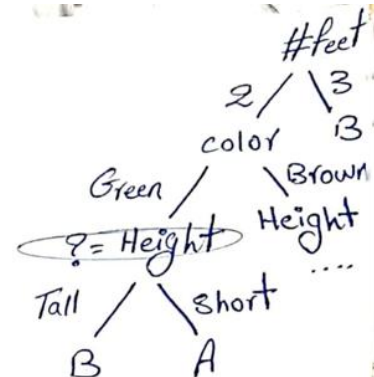 #feet
2 3
color B
Green Brown
?= Height Height
....
Tall Short
B A